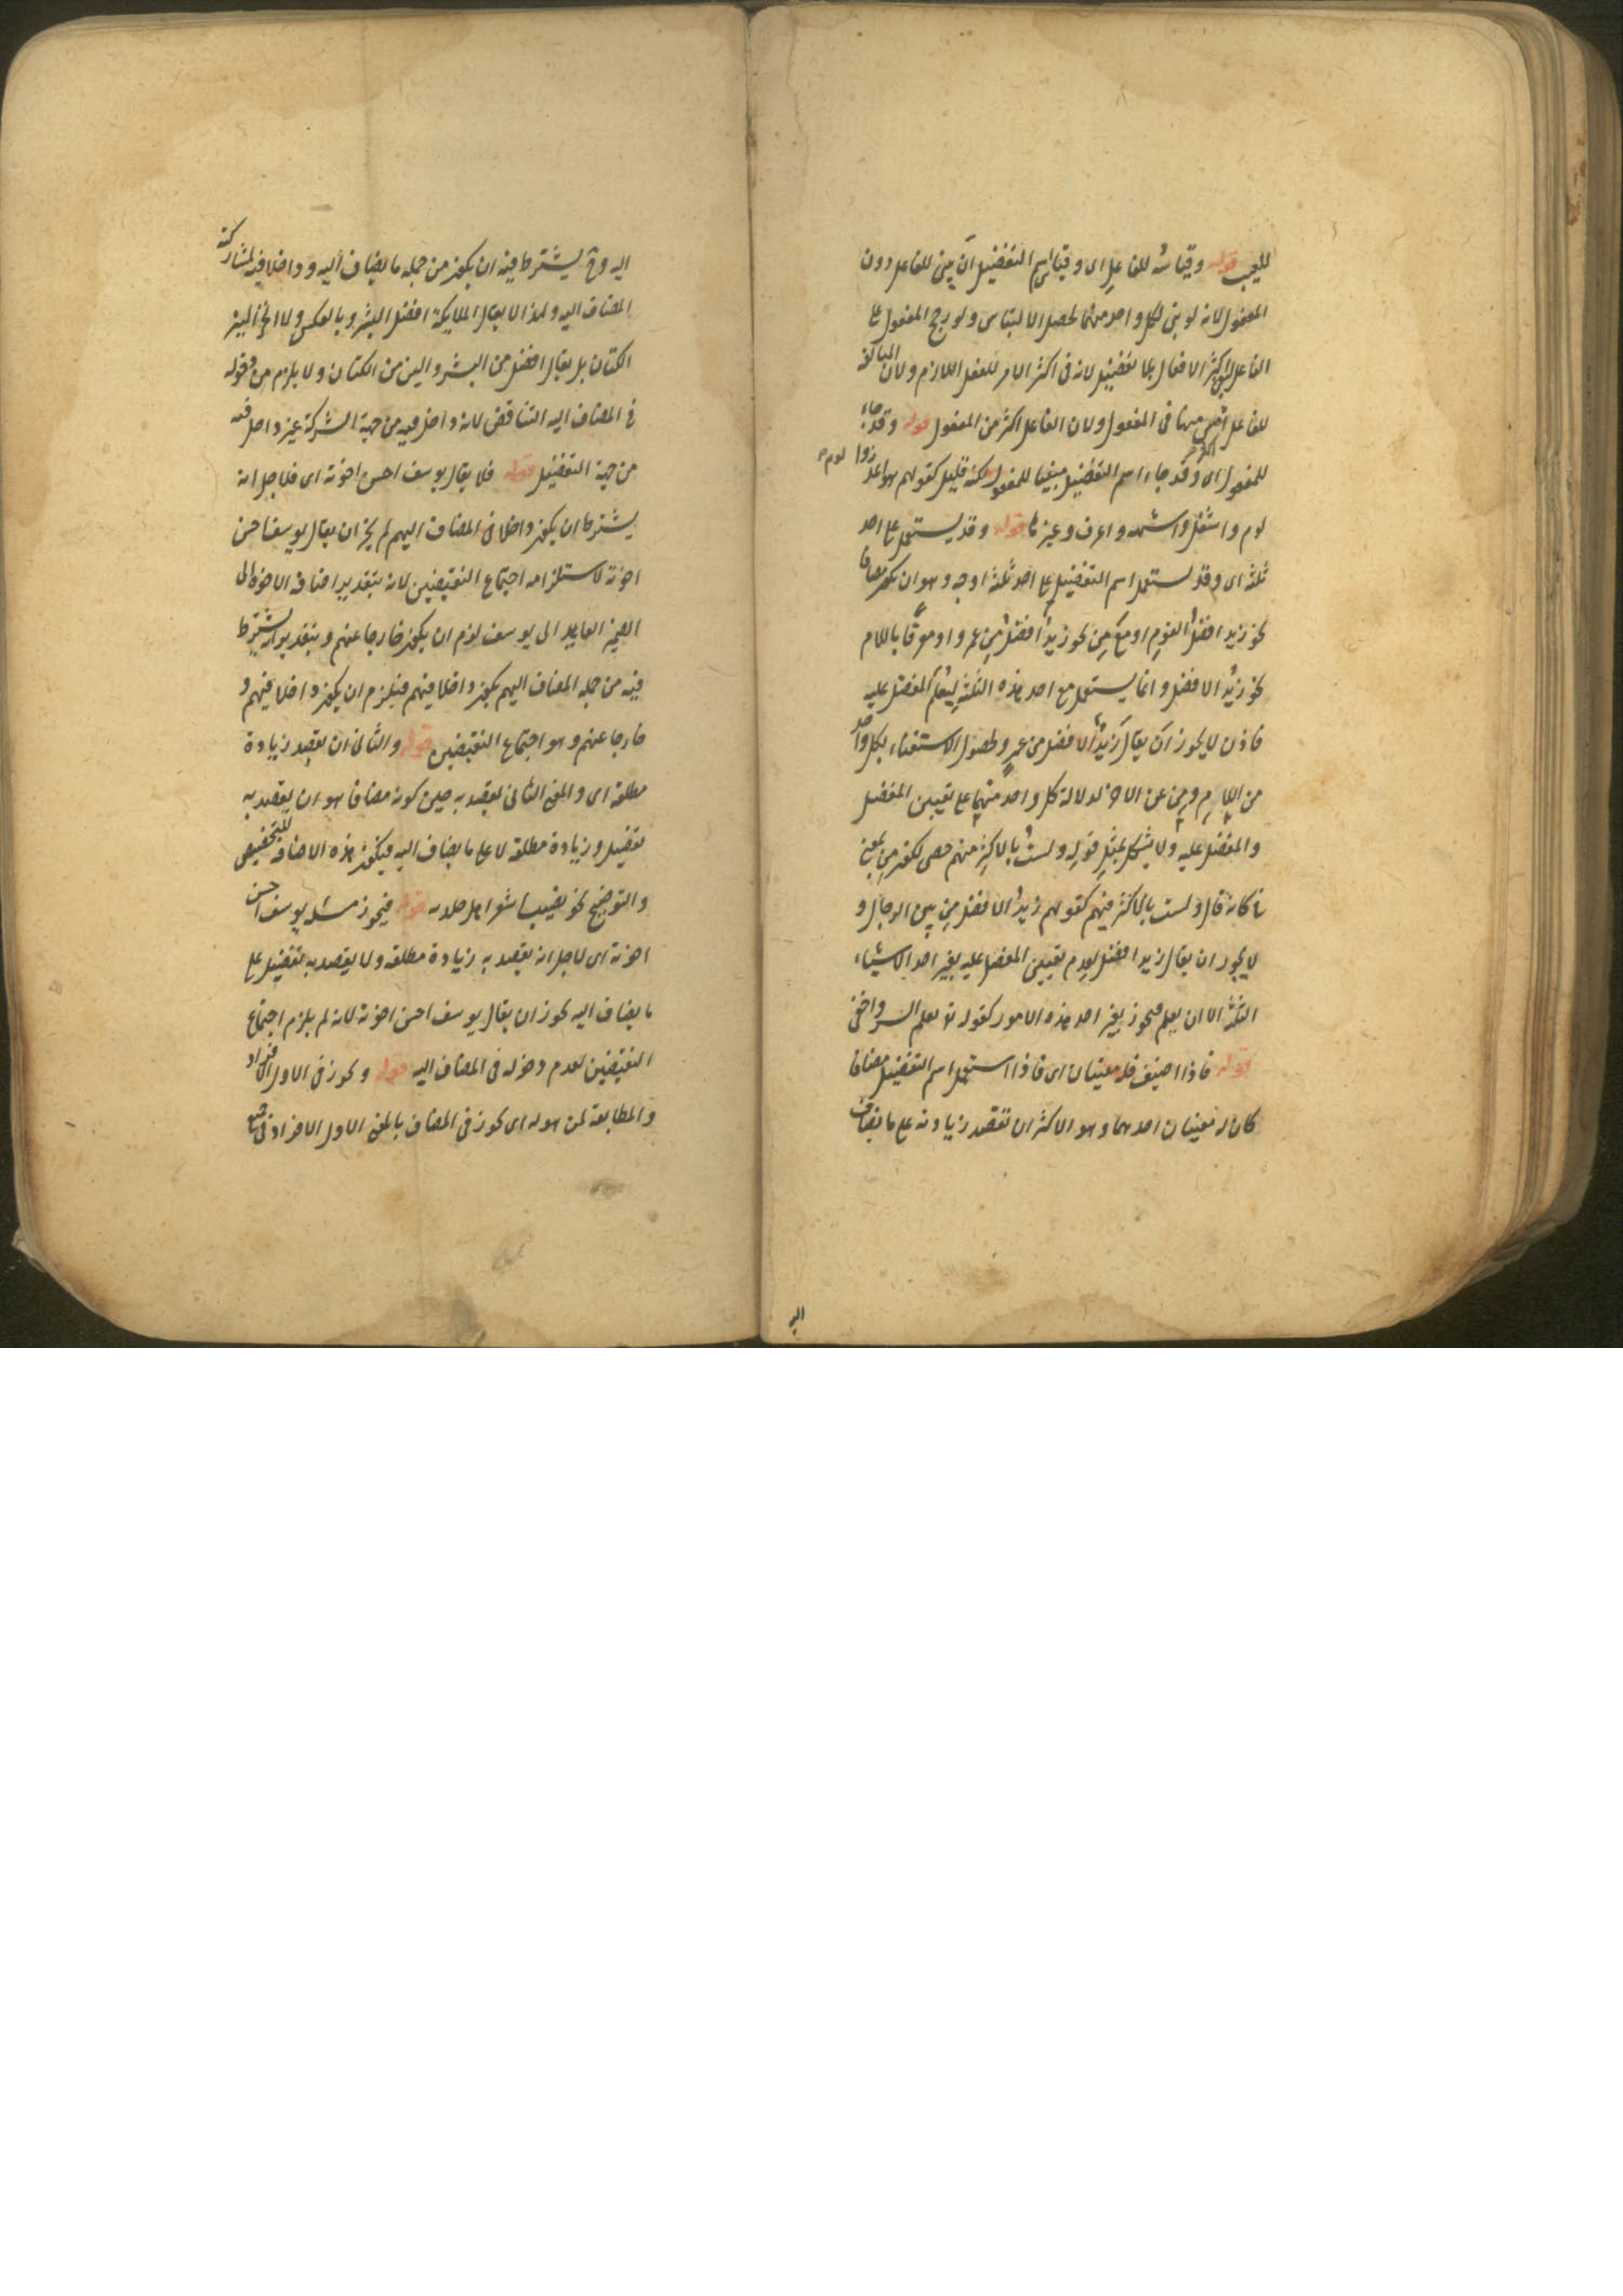 للعيب قوله وقياسه للفاعل اى وقياس اسم التفضيل ان يبنى للفاعل دون
المفعول لانه لو بنى لكل واحد منهما لحصل الالتباس ولو رجح المفعول على
الفاعل لبقى اكثر الافعال بلا تفضيل لانه فى اكثر الامر للفعل اللازم ولان المبالغة
للفاعل اكثر منها فى المفعول ولان الفاعل اكثر من المفعول قوله وقد جاء
للمفعول اى وقد جاء اسم التفضيل مبنيا للمفعول لكنه قليل كقولهم هو اعذر و لوم
لوم واشغل واشهر واعرف وغيرها قوله وقد يستعمل على احد
ثلثة اى وقد يستعمل اسم التفضيل على احد ثلثة اوجه وهو ان يكون مضافا
نحو زيد افضل القوم او مع من نحو زيد افضل من عمرو او معرفا باللام
نحو زيد الافضل وانما يستعمل مع احد هذه الثلثة ليعلم المفضل عليه
فاذن لا يجوز ان يقال زيد الافضل من عمرو لحصول الاستغناء بكل واحد
من اللام ومن عن الاخر لدلالة كل واحد منهما على تعيين المفضل
والمفضل عليه ولا يشكل بمثل قوله ولست بالاكثر منهم حصى لكون من بمعنى
فى كانه قال ولست بالاكثر فيهم كقولهم زيد الافضل من بين الرجال و
لا يجوز ان يقال زيد افضل لعدم تعيين المفضل عليه بغير احد الاشياء
الثلثة الا ان يعلم فيجوز بغير احد هذه الامور كقوله تع يعلم السر واخفى
قوله فاذا اضيف فله معنيان اى فاذا استعمل اسم التفضيل مضافا
كان له معنيان احدهما وهو الاكثر ان تقصد زيادته على ما يضاف
اليه
اليه وح يشترط فيه ان يكون من جملة ما يضاف اليه وداخلا فيه لمشاركته
المضاف اليه ولهذا لا يقال الملايكة افضل البشر وبالعكس ولا الخز الين
الكتان بل يقال افضل من البشر والين من الكتان ولا يلزم من دخوله
فى المضاف اليه التناقض لانه داخل فيه من جهة الشركة غير داخل فيه
من جهة التفضيل قوله فلا يقال يوسف احسن اخوته اى فلاجل انه
يشترط ان يكون داخلا فى المضاف اليهم لم يجز ان يقال يوسف احسن
اخوته لاستلزامه اجتماع النقيضين لانه بتقدير اضافة الاخوة الى
الضمير العايد الى يوسف لزم ان يكون خارجا عنهم وبتقدير ان يشترط
فيه من جملة المضاف اليهم يكون داخلا فيهم فيلزم ان يكون داخلا فيهم و
خارجا عنهم وهو اجتماع النقيضين قوله والثانى ان يقصد زيادة
مطلقة اى والمعنى الثانى يقصد به حين كونه مضافا هو ان يقصد به
تفضيل وزيادة مطلقة لا على ما يضاف اليه فيكون هذه الاضافة للتخصيص
والتوضيح نحو نصيب اشعر اهل جلدته قوله فيجوز مثل يوسف احسن
اخوته اى لاجل انه يقصد به زيادة مطلقة ولا يقصد به تفضيل على
ما يضاف اليه يجوز ان يقال يوسف احسن اخوته لانه لم يلزم اجتماع
النقيضين لعدم دخوله فى المضاف اليه قوله ويجوز فى الاول الافراد
والمطابقة لمن هو له اى يجوز فى المضاف بالمعنى الاول الافراد فى